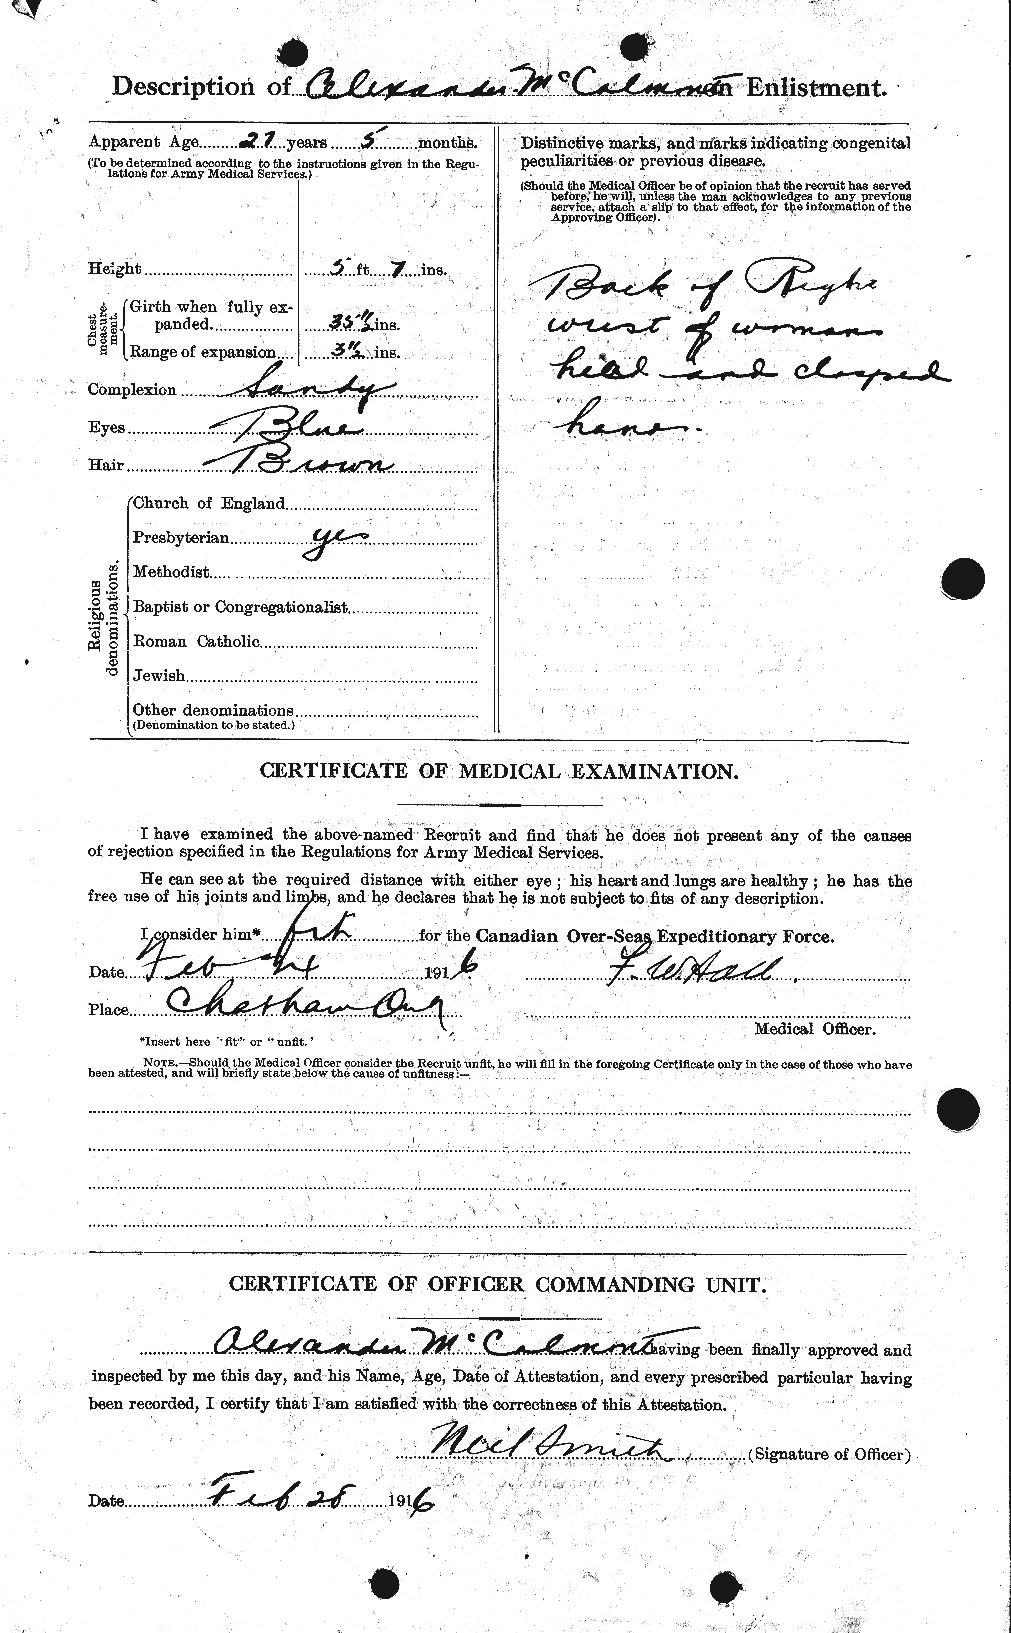 Description of Alexander McCalmont on Enlistment.
Apparent Age 27 years 5 months.
(To be determined according to the instructions given in the Regulations for Army Medical Services.)
Height 5 ft. 7 ins.
Chest measurement.
Girth when fully expanded 35 1/2 ins.
Range of expansion 3 1/2 ins.
Complexion Sandy
Eyes Blue
Hair Brown
Religious denominations.
Church of England
Presbyterian yes
Methodist
Baptist or Congregationalist
Roman Catholic
Jewish
Other denominations
(Denomination to be stated.)
Distinctive marks, and marks indicating congenital
peculiarities or previous disease.
(Should the Medical Officer be of opinion that the recruit has served
before, he will, unless the man acknowledges to any previous
service, attach a slip to that effect, for the information of the
Approving Officer).
Back of Right
wrist of womans
head and clasped
hands.
CERTIFICATE OF MEDICAL EXAMINATION.
I have examined the above-named Recruit and find that he does not present any of the causes
of rejection specified in the Regulations for Army Medical Services.
He can see at the required distance with either eye; his heart and lungs are healthy; he has the
free use of his joints and limbs, and he declares that he is not subject to fits of any description.
I consider him* fit for the Canadian Over-Seas Expeditionary Force.
Date Feb 1916 F. W. Hall.
Place Chatham Ont
Medical Officer.
*Insert here "fit" or "unfit."
NOTE.—Should the Medical Officer consider the Recruit unfit, he will fill in the foregoing Certificate only in the case of those who have
been attested, and will briefly state below the cause of unfitness:—
CERTIFICATE OF OFFICER COMMANDING UNIT.
Alexander McCalmont having been finally approved and
inspected by me this day, and his Name, Age, Date of Attestation, and every prescribed particular having
been recorded, I certify that I am satisfied with the correctness of this Attestation.
Neil Smith (Signature of Officer)
Date Feb 28 1916